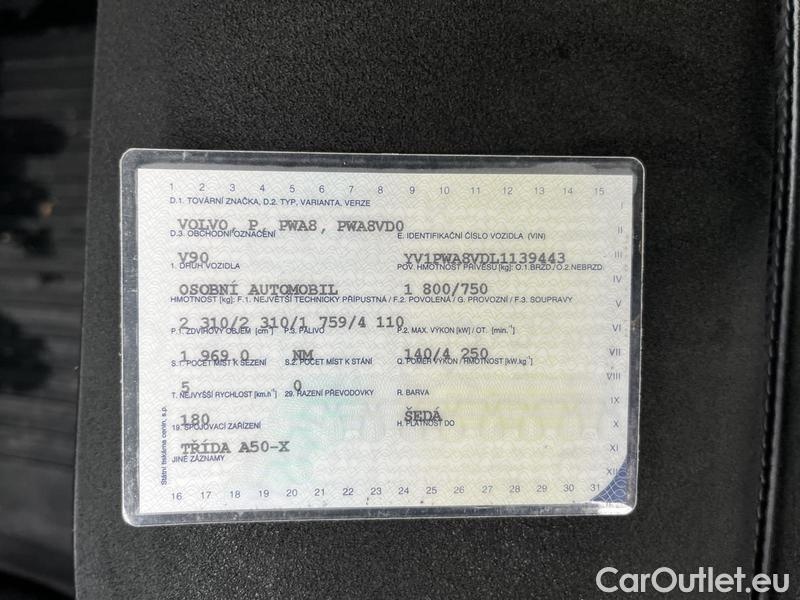 1 2 3 4 5 6 7 8 9 10 11 12 13 14 15
D.1. TOVÁRNÍ ZNAČKA, D.2. TYP, VARIANTA, VERZE I
VOLVO, P, PWA8, PWA8VD0
D.3. OBCHODNÍ OZNAČENÍ E. IDENTIFIKAČNÍ ČÍSLO VOZIDLA (VIN) II
V90 YV1PWA8VDL1139443 III
1. DRUH VOZIDLA POV. HMOTNOST PŘÍVĚSU [kg]: O.1.BRZD./O.2.NEBRZD.
OSOBNÍ AUTOMOBIL 1 800/750 IV
HMOTNOST [kg]: F.1. NEJVĚTŠÍ TECHNICKY PŘÍPUSTNÁ / F.2. POVOLENÁ / G. PROVOZNÍ / F.3. SOUPRAVY V
2 310/2 310/1 759/4 110
P.1. ZDVIHOVÝ OBJEM [cm³] P.3. PALIVO P.2. MAX. VÝKON [kW] / OT. [min.⁻¹] VI
1 969,0 NM 140/4 250 VII
S.1. POČET MÍST K SEZENÍ S.2. POČET MÍST K STÁNÍ Q. POMĚR VÝKON / HMOTNOST [kW.kg⁻¹]
5 0 VIII
T. NEJVYŠŠÍ RYCHLOST [km.h⁻¹] 29. ŘAZENÍ PŘEVODOVKY R. BARVA IX
180 ŠEDÁ
19. SPOJOVACÍ ZAŘÍZENÍ H. PLATNOST DO X
TŘÍDA A50-X XI
JINÉ ZÁZNAMY XII
16 17 18 19 20 21 22 23 24 25 26 27 28 29 30 31
Státní tiskárna cenin, s.p.
CarOutlet.eu